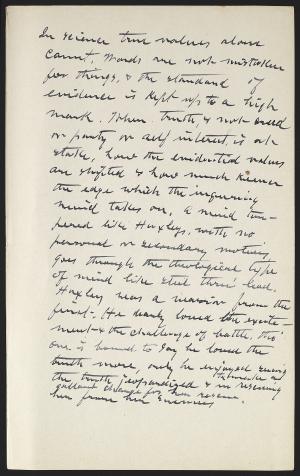 In science true values alone
count, words are not mistaken
for things, & the standard of
evidence is kept up to a high
mark. When truth & not creed
or party or self interest is at
stake, how the evidential values
are shifted & how much keener
the edge which the inquiring
mind takes on. A mind tem-
pered like Huxley's with no
personal or secondary motives,
goes through the theological type
of mind like steel thro' lead.
Huxley was a warrior from the
first. He dearly loved the excite-
ment & the challenge of battle, tho'
one is bound to say he loved the
truth more, only he enjoyed seeing
the truth jeopardized & to make a
gallant charge for her rescue
& in rescuing
her from her enemies